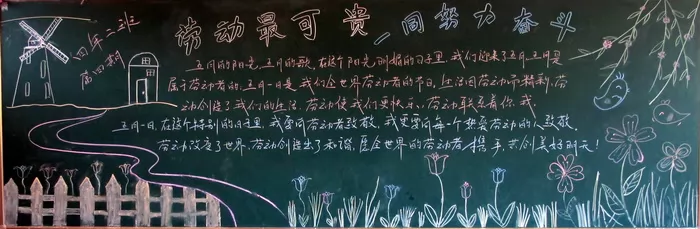 劳动最可贵 一同努力奋斗
四年二班
第四期
五月的阳光,五月的歌,在这个阳光明媚的日子里,我们迎来了五月,五月是
属于劳动者的,五月一日是我们全世界劳动者的节日,生活因劳动而精彩,劳
动创造了我们的生活,劳动使我们更快乐,劳动联系着你、我。
五月一日,在这个特别的日子里,我要向劳动者致敬,我更要向每一个热爱劳动的人致敬。
劳动改变了世界,劳动创造出了和谐,愿全世界的劳动者携手,共创美好明天!